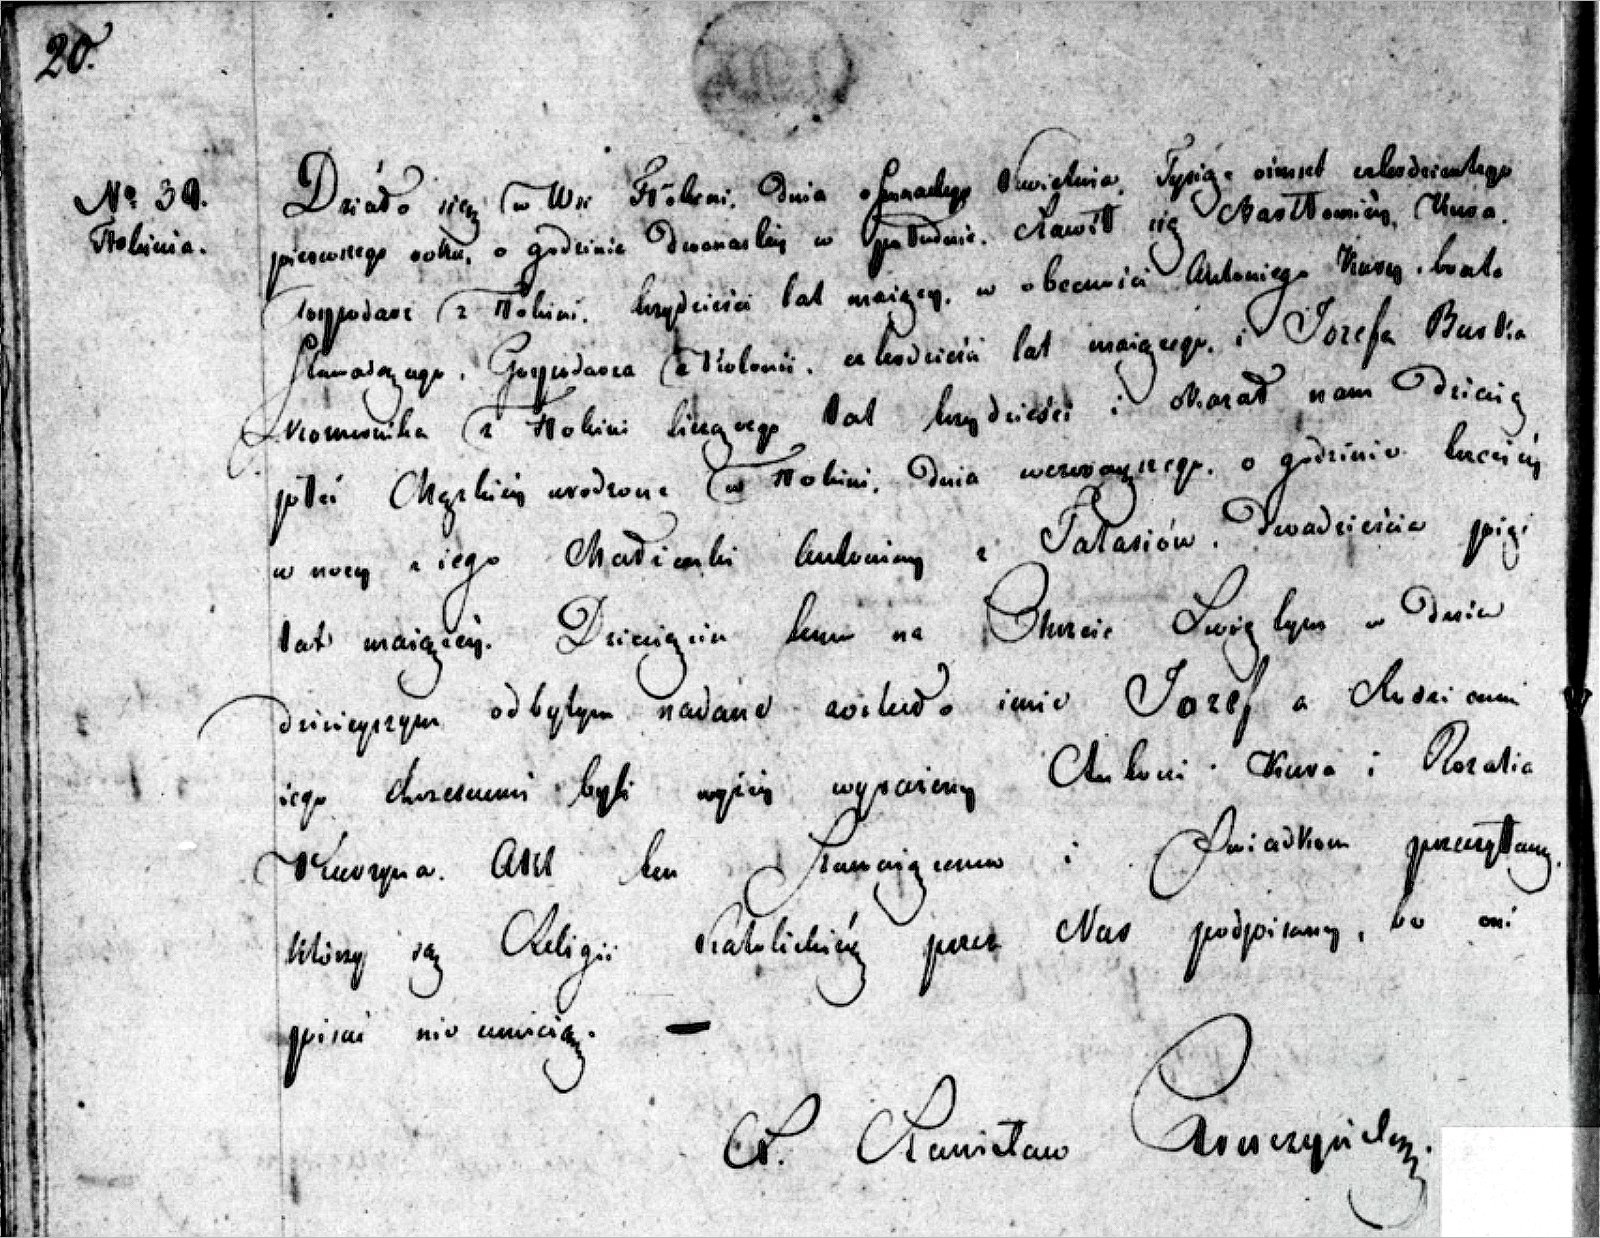 20.
No 39.
Działo się w Wsi dnia Kwietnia, Tysiąc ośmset czterdziestego
pierwszego roku, o godzinie dwunastej w południe. Stawił się Bartłomiej Kura.
Gospodarz z trzydzieści lat mający, w obecności Antoniego Kury, brata
Stawającego, Gospodarza z Kolonii, czterdzieści lat mającego, i Jozefa
Komornika z liczącego lat trzydzieści i okazał nam Dziecię
płci Męzkiej urodzone w dnia wczorayszego, o godzinie trzeciej
w nocy z iego Małżonki Antoniny z Dwadzieścia pięć
lat maiącej. Dziecięciu temu na Chrzcie Świętym w dniu
dzisieyszym odbytym nadane zostało imie Jozef a Rodzicami
iego chrzestnemi byli wyżej wyrażony Antoni Kura i Rozalia
Akt ten Stawaiącemu i Świadkom przeczytany,
którzy są Religii Katolickiej przez Nas podpisany, bo oni
pisać nie umieią. —
X. Stanisław